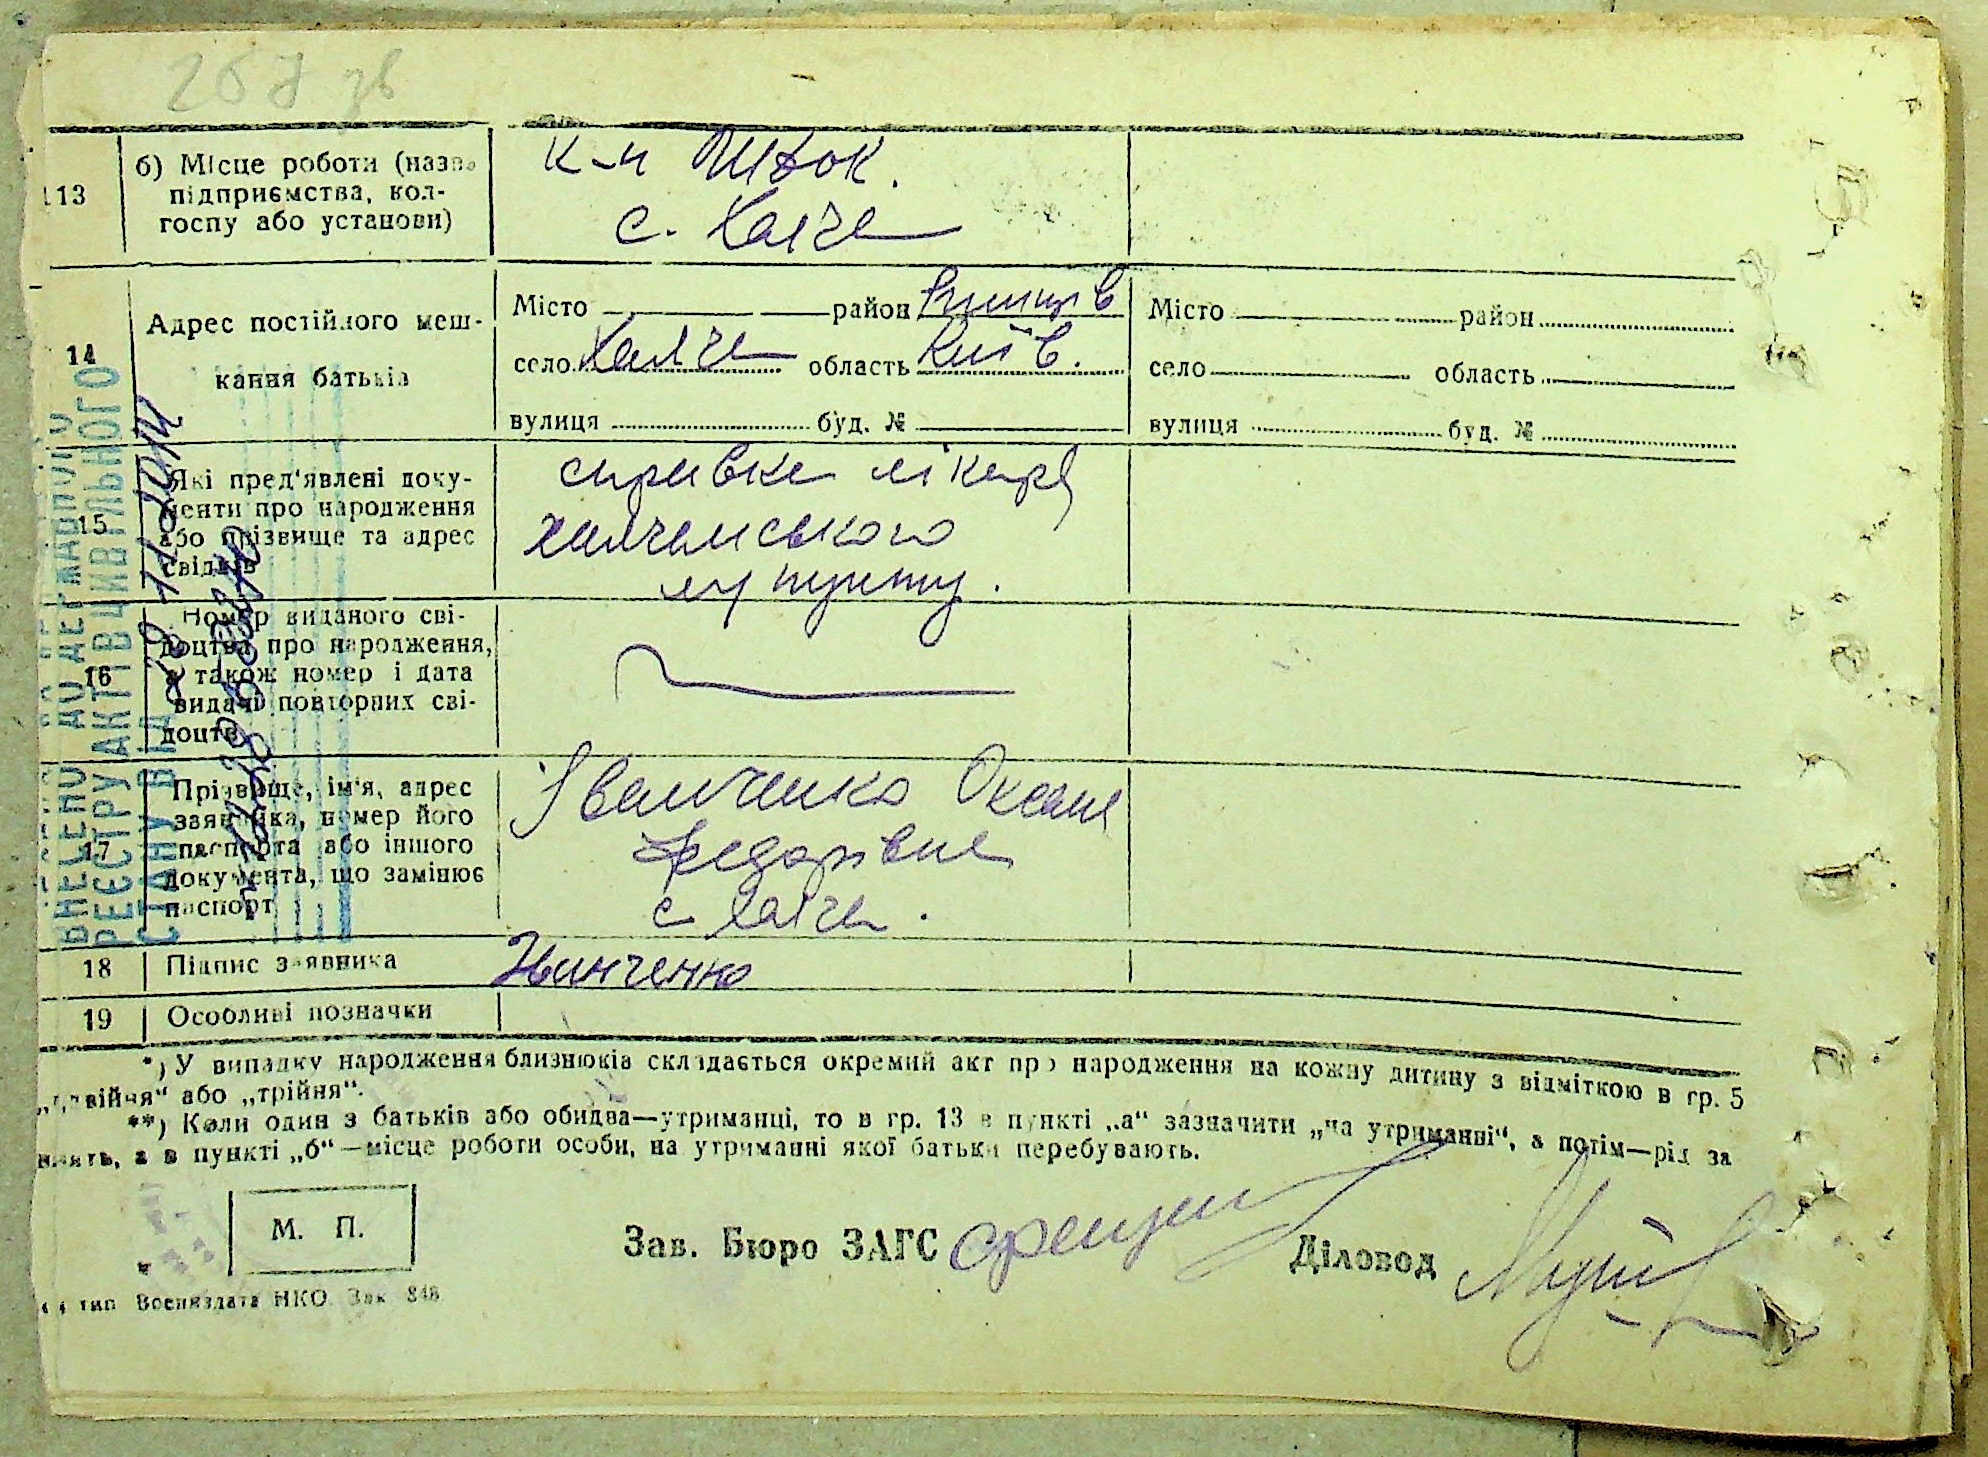 267 зв
113
б) Місце роботи (назва
підприємства, кол-
госпу або установи)
к-п
с. Халча
14
Адрес постійного меш-
кання батьків
Місто район Ржищів
село Халча область Київ.
вулиця буд. №
Місто район
село область
вулиця буд. №
15
Які пред'явлені доку-
менти про народження
або прізвище та адрес
свідків
справка лікаря
халчанського
пункту.
16
Номер виданого сві-
доцтва про народження,
а також номер і дата
видачі повторних сві-
доцтв
17
Прізвище, ім'я, адрес
заявника, номер його
паспорта або іншого
документа, що замінює
паспорт
Іванченко Оксана
Федорівна
с Халча.
18
Підпис заявника
Иванченко
19
Особливі позначки
*) У випадку народження близнюків складається окремий акт про народження на кожну дитину з відміткою в гр. 5
„двійня“ або „трійня“.
**) Коли один з батьків або обидва—утриманці, то в гр. 13 в пункті „а“ зазначити „на утриманні“, а потім—рід за
нять, а в пункті „б“—місце роботи особи, на утриманні якої батьки перебувають.
М. П.
Зав. Бюро ЗАГС
Діловод
тип Воениздата НКО Зак 848
ВНЕСЕНО ДО ДЕРЖАВНОГО
РЕЄСТРУ АКТІВ ЦИВІЛЬНОГО
СТАНУ ВІД